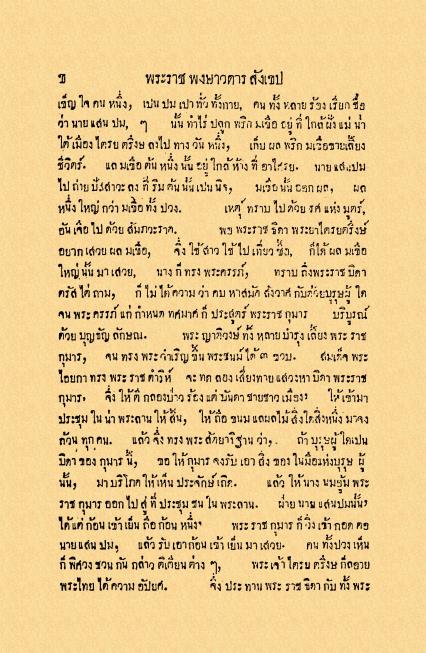 ๒ พระราช พงษาวดาร สังเขป
เข็ญ ใจ คน หนึ่ง, เปน ปม เปา ทั่ว ทั้งกาย, คน ทั้ง หลาย ร้อง เรียก ชื่อ
ว่า นาย แสน ปม, ๆ นั้น ทำไร่ ปลูก พริก มะเขือ อยู่ ที่ ใกล้ ฝั่ง แม่ น้ำ
ใต้ เมือง ไตรย ตรึงษ ลงไป ทาง วัน หนึ่ง, เก็บ ผล พริก มะเขือขายเลี้ยง
ชีวิตร์. แต่ มะเขือ ต้น หนึ่ง นั้น อยู่ ใกล้ ห้าง ที่ อาไศรย. นาย แสนปม
ไป ถ่าย ปัสสาวะ ลง ที่ ริม ต้น นั้น เปน นิจ, มะเขือ นั้น ออก ผล, ผล
หนึ่ง ใหญ่ กว่า มะเขือ ทั้ง ปวง. เหตุ์ ทราบ ไป ด้วย รศ แห่ง มูตร์,
อัน เจือ ไป ด้วย สัมภวะราค. พอ พระราช ธิดา พระยาไตรยตรึงษ์
อยาก เสวย ผล มะเขือ, จึ่ง ใช้ สาว ใช้ ไป เที่ยว ซื้อ, ก็ได้ ผล มะเขือ
ใหญ่ นั้น มา เสวย, นาง ก็ ทรง พระครรภ์, ทราบ ถึงพระราช บิดา
ตรัส ไต่ ถาม, ก็ ไม่ ได้ ความ ว่า คบ หาสมัค สังวาศ กับด้วยบุรุษผู้ ใด
จน พระ ครรภ์ แก่ กำหนด ทศมาศ ก็ ประสูตร์ พระราช กุมาร บริบูรณ์
ด้วย บุญขัญ ลักษณ. พระ ญาติวงษ์ ทั้ง หลาย บำรุง เลี้ยง พระ ราช
กุมาร, จน ทรง พระ จำเริญ ขึ้น พระชนม์ ได้ ๓ ขวบ. สมเด็จ พระ
ไอยกา ทรง พระ ราช ดำริห์ จะ ทด ลอง เสี่ยงทาย แสวงหา บิดา พระราช
กุมาร. จึ่ง ให้ ตี กลองป่าว ร้อง แต่ บันดา ชายชาว เมือง ให้ เข้ามา
ประชุม ใน น่า พระลาน ให้ สิ้น, ให้ ถือ ขนม แลผลไม้ สิ่งใดสิ่งหนึ่ง มาจง
ถ้วน ทุกคน. แล้ว จึ่ง ทรง พระ สัตยาธิฐาน ว่า, ถ้า บุรุษผู้ ใดเปน
บิดา ของ กุมาร นี้, ขอ ให้ กุมาร จงรับ เอา สิ่ง ของ ในมือแห่งบุรุษ ผู้
นั้น, มา บริโภค ให้ เห็น ประจักษ์ เถิด. แล้ว ให้ นาง นมอุ้ม พระ
ราช กุมาร ออก ไป สู่ ที่ ประชุม ชน ใน พระลาน. ฝ่าย นาย แสนปมนั้น
ได้ แต่ ก้อน เข้า เย็น ถือ ก้อน หนึ่ง พระ ราช กุมาร ก็ วิ่ง เข้า กอด คอ
นายแสน ปม, แล้ว รับ เอา ก้อน เข้า เย็น มา เสวย. คน ทั้งปวง เห็น
ก็ พิศวง ชวน กัน กล่าว ติเตียน ต่าง ๆ, พระ เจ้า ไตรย ตรึงษ ก็ลอาย
พระไทย ได้ ความ อัปยศ. จึ่ง ประ ทาน พระ ราช ธิดา กับ ทั้ง พระ